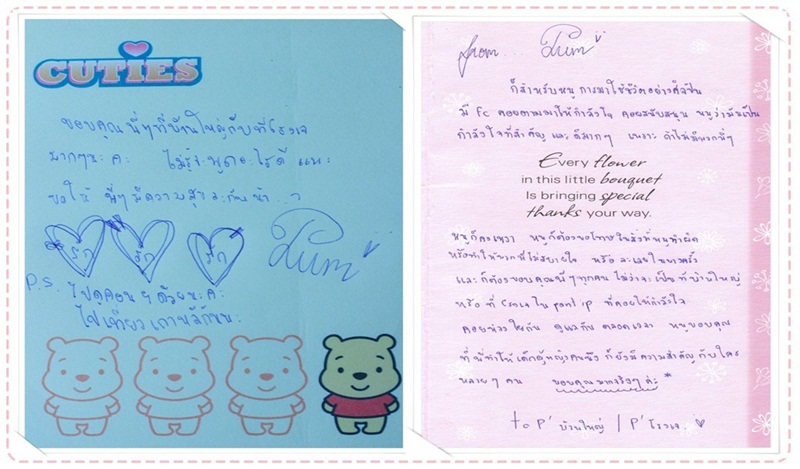 CUTIES
ขอบคุณพี่ๆที่บ้านใหญ่กับที่โรงเจ
มากๆนะคะ ไม่รู้จะพูดอะไรดี แนะ
ขอให้ พี่ๆมีความสุขละกันน้า
รัก รัก รัก
P.S. ไปดูคอนฯด้วยนะคะ
ไปเที่ยวเกาหลีกันนะ
from...
ก็สำหรับหนู การมาใช้ชีวิตอย่างศิลปิน
มี Fc คอยตามมาให้กำลังใจ คอยสนับสนุน หนูว่ามันเป็น
กำลังใจที่สำคัญ และดีมากๆ เพราะ ถ้าไม่มีพวกพี่ๆ
Every flower
in this little bouquet
Is bringing special
thanks your way.
หนูก็คงเหงา หนูก็ต้องขอโทษในสิ่งที่หนูทำผิด
หรือทำให้พวกพี่ไม่สบายใจ หรือ ละเลยในบางครั้ง
และก็ต้องขอบคุณพี่ๆทุกคน ไม่ว่าจะเป็นที่บ้านใหญ่
หรือ ที่โรงเจใน pantip ที่คอยให้กำลังใจ
คอยห่วงใยกัน ดูแลกัน ตลอดเวลา หนูขอบคุณ
ที่พี่ทำให้เด็กผู้หญิงคนนึง ก็ยังมีความสำคัญกับใคร
หลายๆคน ขอบคุณมากจริงๆค่ะ
to P' บ้านใหญ่ | P' โรงเจ